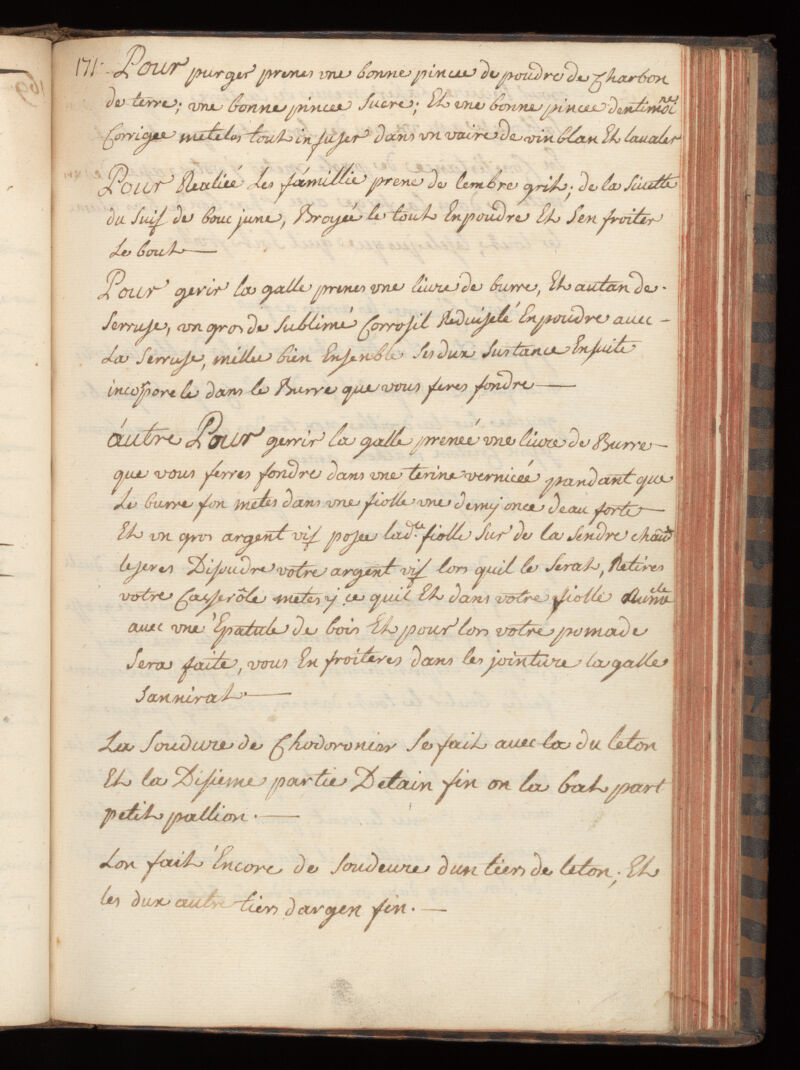 171. Pour purger prenes vne bonne pincée de poudre de Charbon
de terre; vne bonne pincée Sucre; Et vne bonne pincée dentimoine
Corrigée metelos tout infuser dans vn vaire de vin blan Et lavaler
Pour Realiéé Les fámillie prene de lembre grit; de la Sivette
du Suif de bouc june, Broyée le tout En poudre Et S'en froiter
Le bout
Pour gerir la galle prenes vne livre de burre, Et autan de
Serruse, vn gros de Sublimé Corrosil Reduiselé En poudre avec
La Serruse, millee bien Ensenble Ses dux Sustance Ensuite
incorpore le dans le Burre que vous feres fondre
áutre Pour gerrir la galle prenéé vne livre de Burre
que vous ferres fondre dans vne terine vernicéé pandant que
Le burre fon metes dans vne fiolle vne demy once deau forte
Et vn gros argent vif posee lad.te fiolle Sur de la Sendre chaude
le feres Disoudre votre argent vif lors quil le Serat, Retires
votre Casserôle metes y ce quil Et dans votre fiolle
avec vne Epatule de bois Et pour lors votre pomade
Sera faite, vous En froiteres dans les jointure la galle
Sannirat
La Soudure de Chodronier Se fait avec la du leton
Et la Disieme partie Detain fin on la bat part
petit pallion.
Lon fait Encore de Soudeure dun tiers de leton; Et
les dux autre tiers dargen fin.